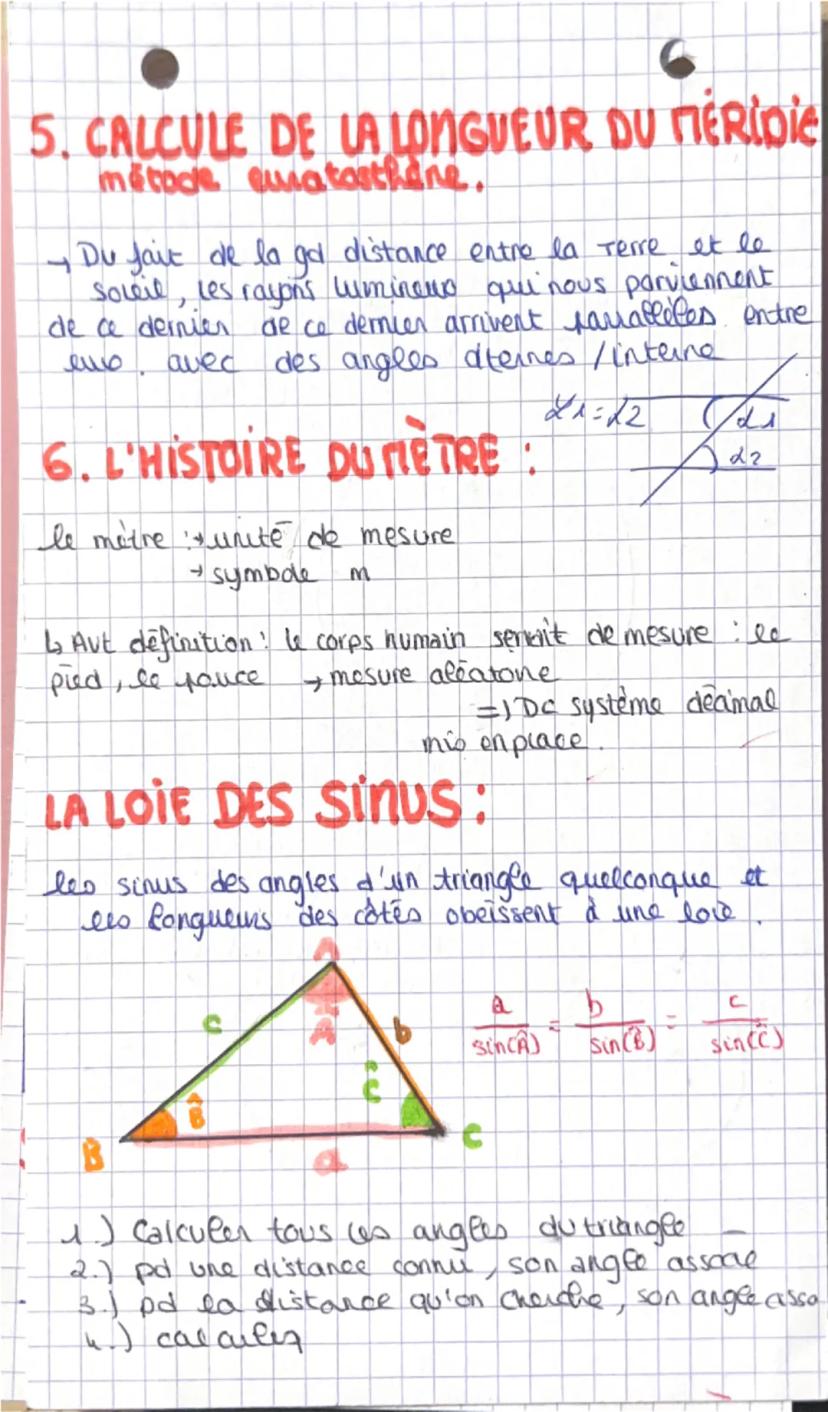 5. CALCULE DE LA LONGUEUR DU MÉRIDIE
métode euratosthène.
→ Du fait de la gd distance entre la Terre et le
soleil, les rayons lumineux qui nous parviennent
de ce dernier de ce dernier arrivent parallèles entre
eux. avec des angles alternes / interne
α1=α2
α1
α2
6. L'HISTOIRE DU MÈTRE :
le mètre :→ unité de mesure
→ symbole m
↳ Avt définition : le corps humain servait de mesure : le
pied, le pouce → mesure aléatoire
=) Dc système décimal
mis en place.
LA LOIE DES SINUS :
les sinus des angles d'un triangle quelconque et
les longueurs des côtés obéissent à une loie.
A
c
Â
b
Ĉ
B̂
B
C
a
a/sin(Â) = b/sin(B̂) = c/sin(Ĉ)
1.) Calculer tous les angles du triangle
2.) pd une distance connu, son angle associé
3.) pd la distance qu'on cherche, son angle asso
4.) calculer